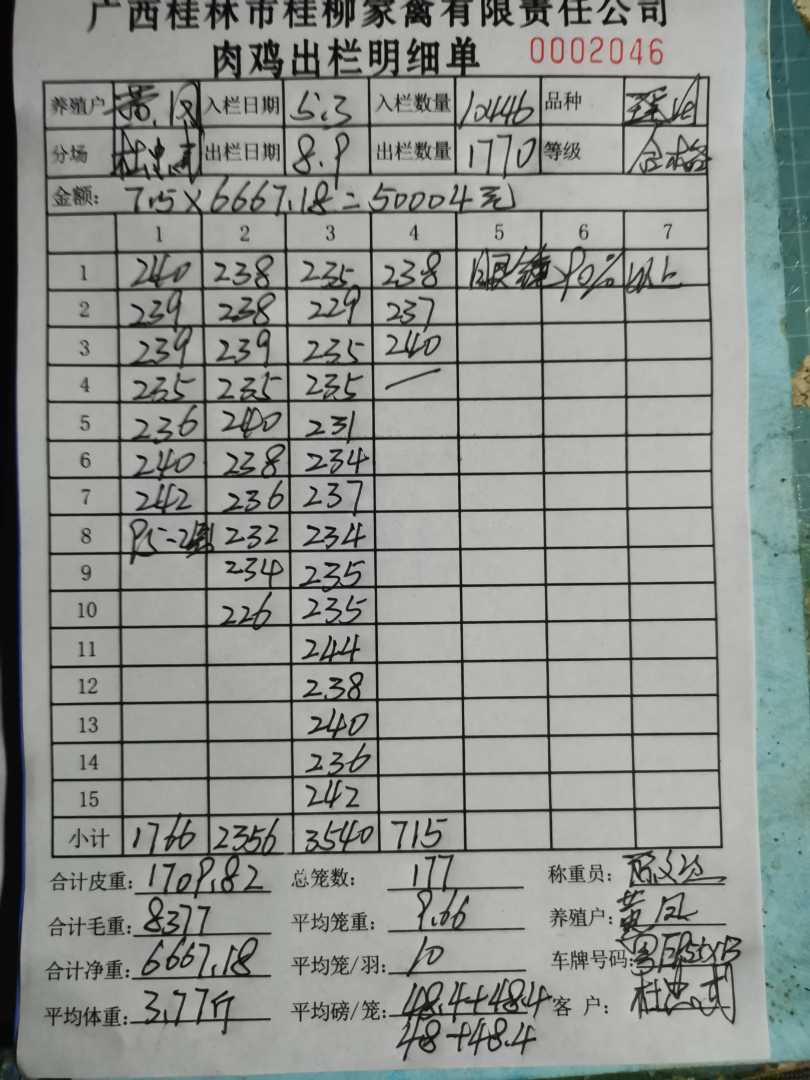 广西桂林市桂柳家禽有限责任公司
肉鸡出栏明细单 0002046
养殖户 黄 凤 入栏日期 5.3 入栏数量 10446 品种
分场 出栏日期 8.9 出栏数量 1770 等级 合格
金额: 7.5×6667.18=50004元
1 2 3 4 5 6 7
1 240 238 235 238 >90% 以上
2 239 238 229 237
3 239 239 235 240
4 235 235 235 —
5 236 240 231
6 240 238 234
7 242 236 237
8 232 234
9 234 235
10 226 235
11 244
12 238
13 240
14 236
15 242
小计 1766 2356 3540 715
合计皮重: 1709.82 总笼数: 177 称重员:
合计毛重: 8377 平均笼重: 9.66 养殖户: 黄凤
合计净重: 6667.18 平均笼/羽: 10 车牌号码:
平均体重: 3.77斤 平均磅/笼: 48.4+48.4 客 户: 杜忠
48+48.4